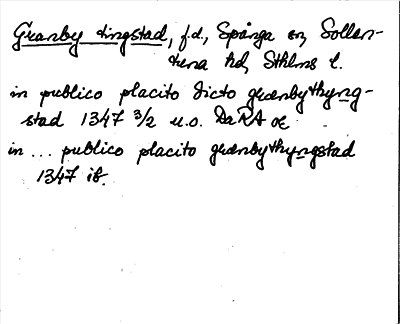 Granby tingstad, f.d., Spånga sn, Sollen-
tuna hd, Sthlms l.
in publico placito dicto grænbythyng-
stad 1347 3/2 u.o. DaRA or
in ... publico placito grænbythyngstad
1347 ib.